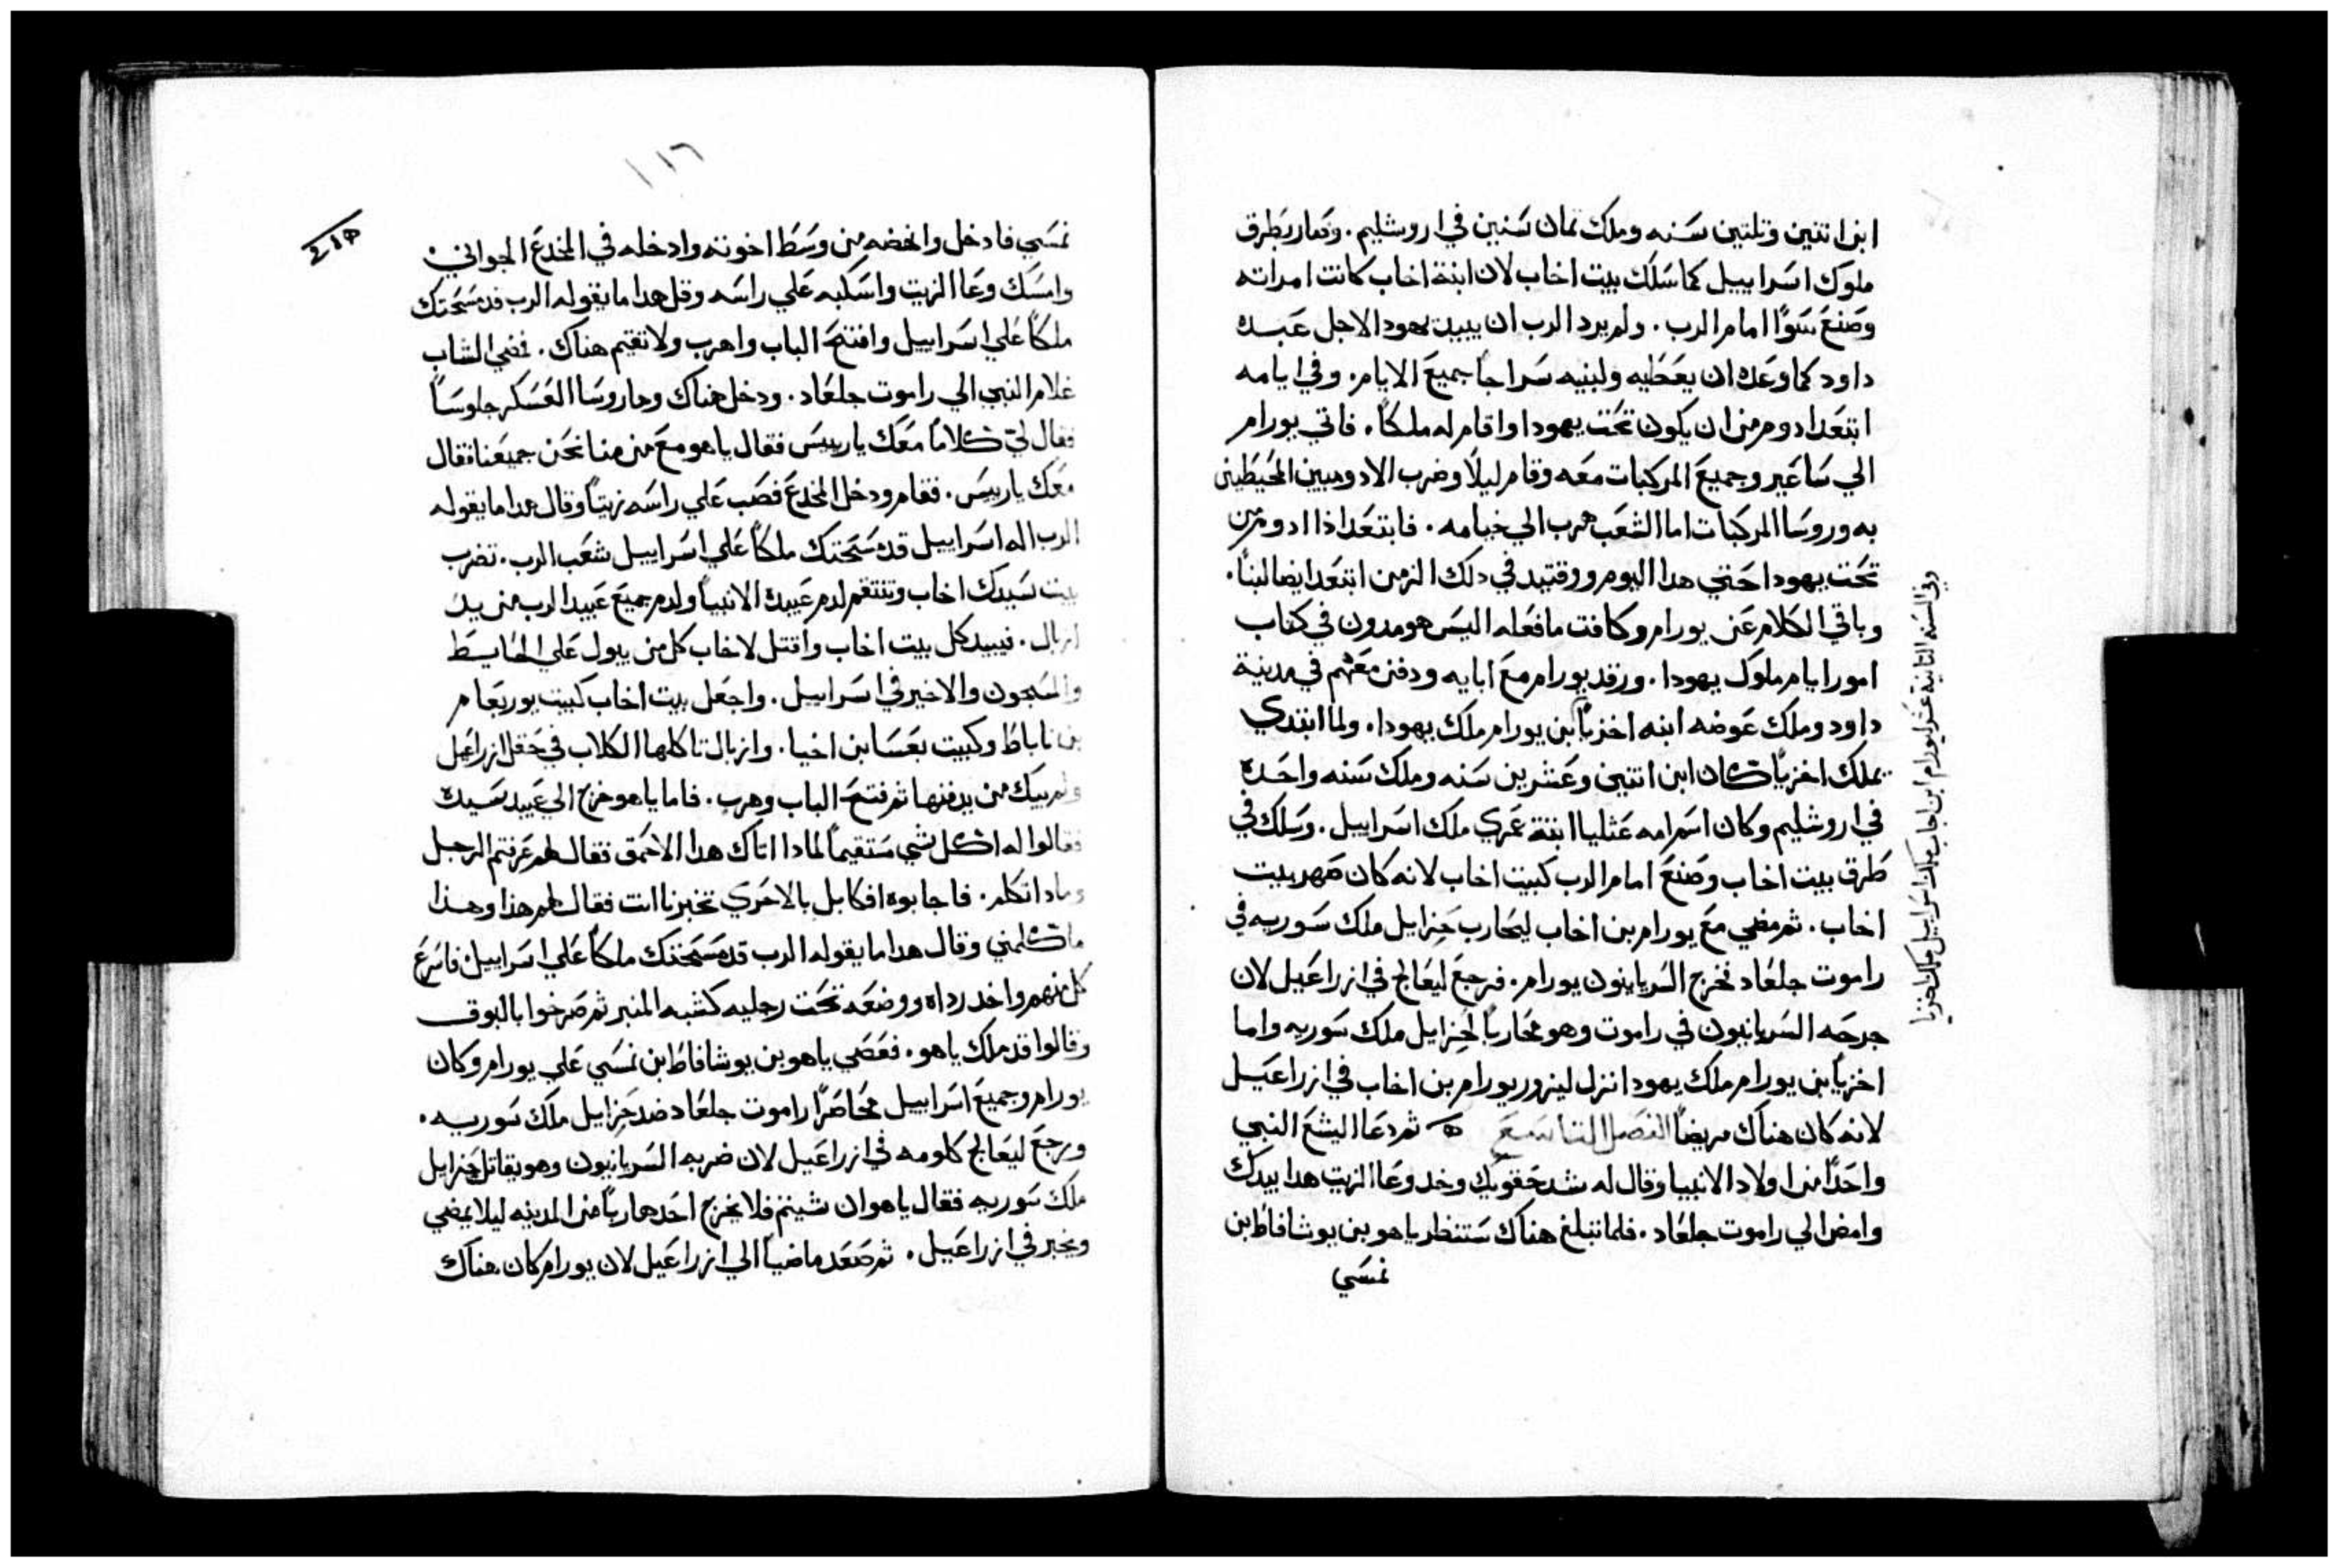 ابن اتنين وتلتين سنه وملك تمان سنين في اروشليم. وصار بطرق
ملوك اسراييل كما سلك بيت اخاب لان ابنة اخاب كانت امراته
وصنع سوًا امام الرب. ولم يرد الرب ان يبيد يهودا لاجل عبده
داود كما وعده ان يعطيه ولبنيه سراجاً جميع الايام. وفي ايامه
ابتعد ادوم من ان يكون تحت يهودا واقام له ملكاً. فاتي يورام
الي ساعير وجميع المركبات معه وقام ليلاً وضرب الادوميين المحيطين
به وروسا المركبات اما الشعب هرب الي خيامه. فابتعد اذا ادوم من
تحت يهودا حتي هدا اليوم ووقتيد في دلك الزمن ابتعد ايضا لبنا.
وباقي الكلام عن يورام وكافت مافعله اليس هو مدون في كتاب
امور ايام ملوك يهودا. ورقد يورام مع ابايه ودفن معهم في مدينة
داود وملك عوضه ابنه اخزيا بن يورام ملك يهودا. ولما ابتدي
يملك اخزيا كان ابن اتنين وعشرين سنه وملك سنه واحده
في اروشليم وكان اسم امه عثليا ابنة عمري ملك اسراييل. وسلك في
طرق بيت اخاب وصنع امام الرب كبيت اخاب لانه كان صهر بيت
اخاب. ثم مضي مع يورام بن اخاب ليحارب حزاييل ملك سوريه في
راموت جلعاد فخرج السريانيون يورام. فرجع ليعالج في ازراعيل لان
جرحه السريانيون في راموت وهو محارباً لحزاييل ملك سوريه واما
اخزيا بن يورام ملك يهودا نزل ليزور يورام بن اخاب في ازراعيل
لانه كان هناك مريضاً الفصل التاسع ثم دعا اليشع النبي
واحداً من اولاد الانبيا وقال له شد حقويك وخد وعا الزيت هدا بيدك
وامض الي راموت جلعاد. فلما تبلغ هناك ستنظر ياهو بن يوشافاط بن
نمسي
وفي السنه التانية عشر ليورام ابن اخاب ملك اسراييل ملك اخزيا
١١٦
نمسي فادخل وانهضه من وسط اخوته وادخله في المخدع الجواني.
وامسك وعا الزيت واسكبه علي راسه وقل هدا ما يقوله الرب قد مسحتك
ملكاً علي اسراييل وافتح الباب واهرب ولا تقيم هناك. فمضي الشاب
غلام النبي الي راموت جلعاد. ودخل هناك وها روسا العسكر جلوساً
فقال لي كلاماً معك يا رييس فقال ياهو مع من منا نحن جميعنا فقال
معك يا رييس. فقام ودخل المخدع فصب علي راسه زيتاً وقال هدا ما يقوله
الرب اله اسراييل قد مسحتك ملكاً علي اسراييل شعب الرب. تضرب
بيت سيدك اخاب وتنتقم لدم عبيده الانبيا ولدم جميع عبيد الرب من يد
ازبال. فيبيد كل بيت اخاب واقتل لاخاب كل من يبول علي الحايط
والمسجون والاخير في اسراييل. واجعل بيت اخاب كبيت يوربعام
بن ناباط وكبيت بعسا بن اخيا. وازبال تاكلها الكلاب في حقل ازراعيل
ولم يك من يدفنها ثم فتح الباب وهرب. فاما ياهو خرج الي عبيد سيده
فقالوا له اكل شي مستقيماً لمادا اتاك هدا الاحمق فقال لهم عرفتم الرجل
ومادا تكلم. فاجابوه افكا بل بالاحري تخبرنا انت فقال لهم هذا وهذا
ما كلمني وقال هدا ما يقوله الرب قد مسحتك ملكاً علي اسراييل فاسرع
كل منهم واخد رداه ووضعه تحت رجليه كشبه المنبر ثم صرخوا بالبوق
وقالوا قد ملك ياهو. فعصي ياهو بن يوشافاط ابن نمسي علي يورام وكان
يورام وجميع اسراييل محاصراً راموت جلعاد ضد حزاييل ملك سوريه.
ورجع ليعالج كلومه في ازراعيل لان ضربه السريانيون وهو يقاتل حزاييل
ملك سوريه فقال ياهو ان شيتم فلا يخرج احد هارباً من المدينه ليلا يمضي
ويخبر في ازراعيل. ثم صعد ماضياً الي ازراعيل لان يورام كان هناك